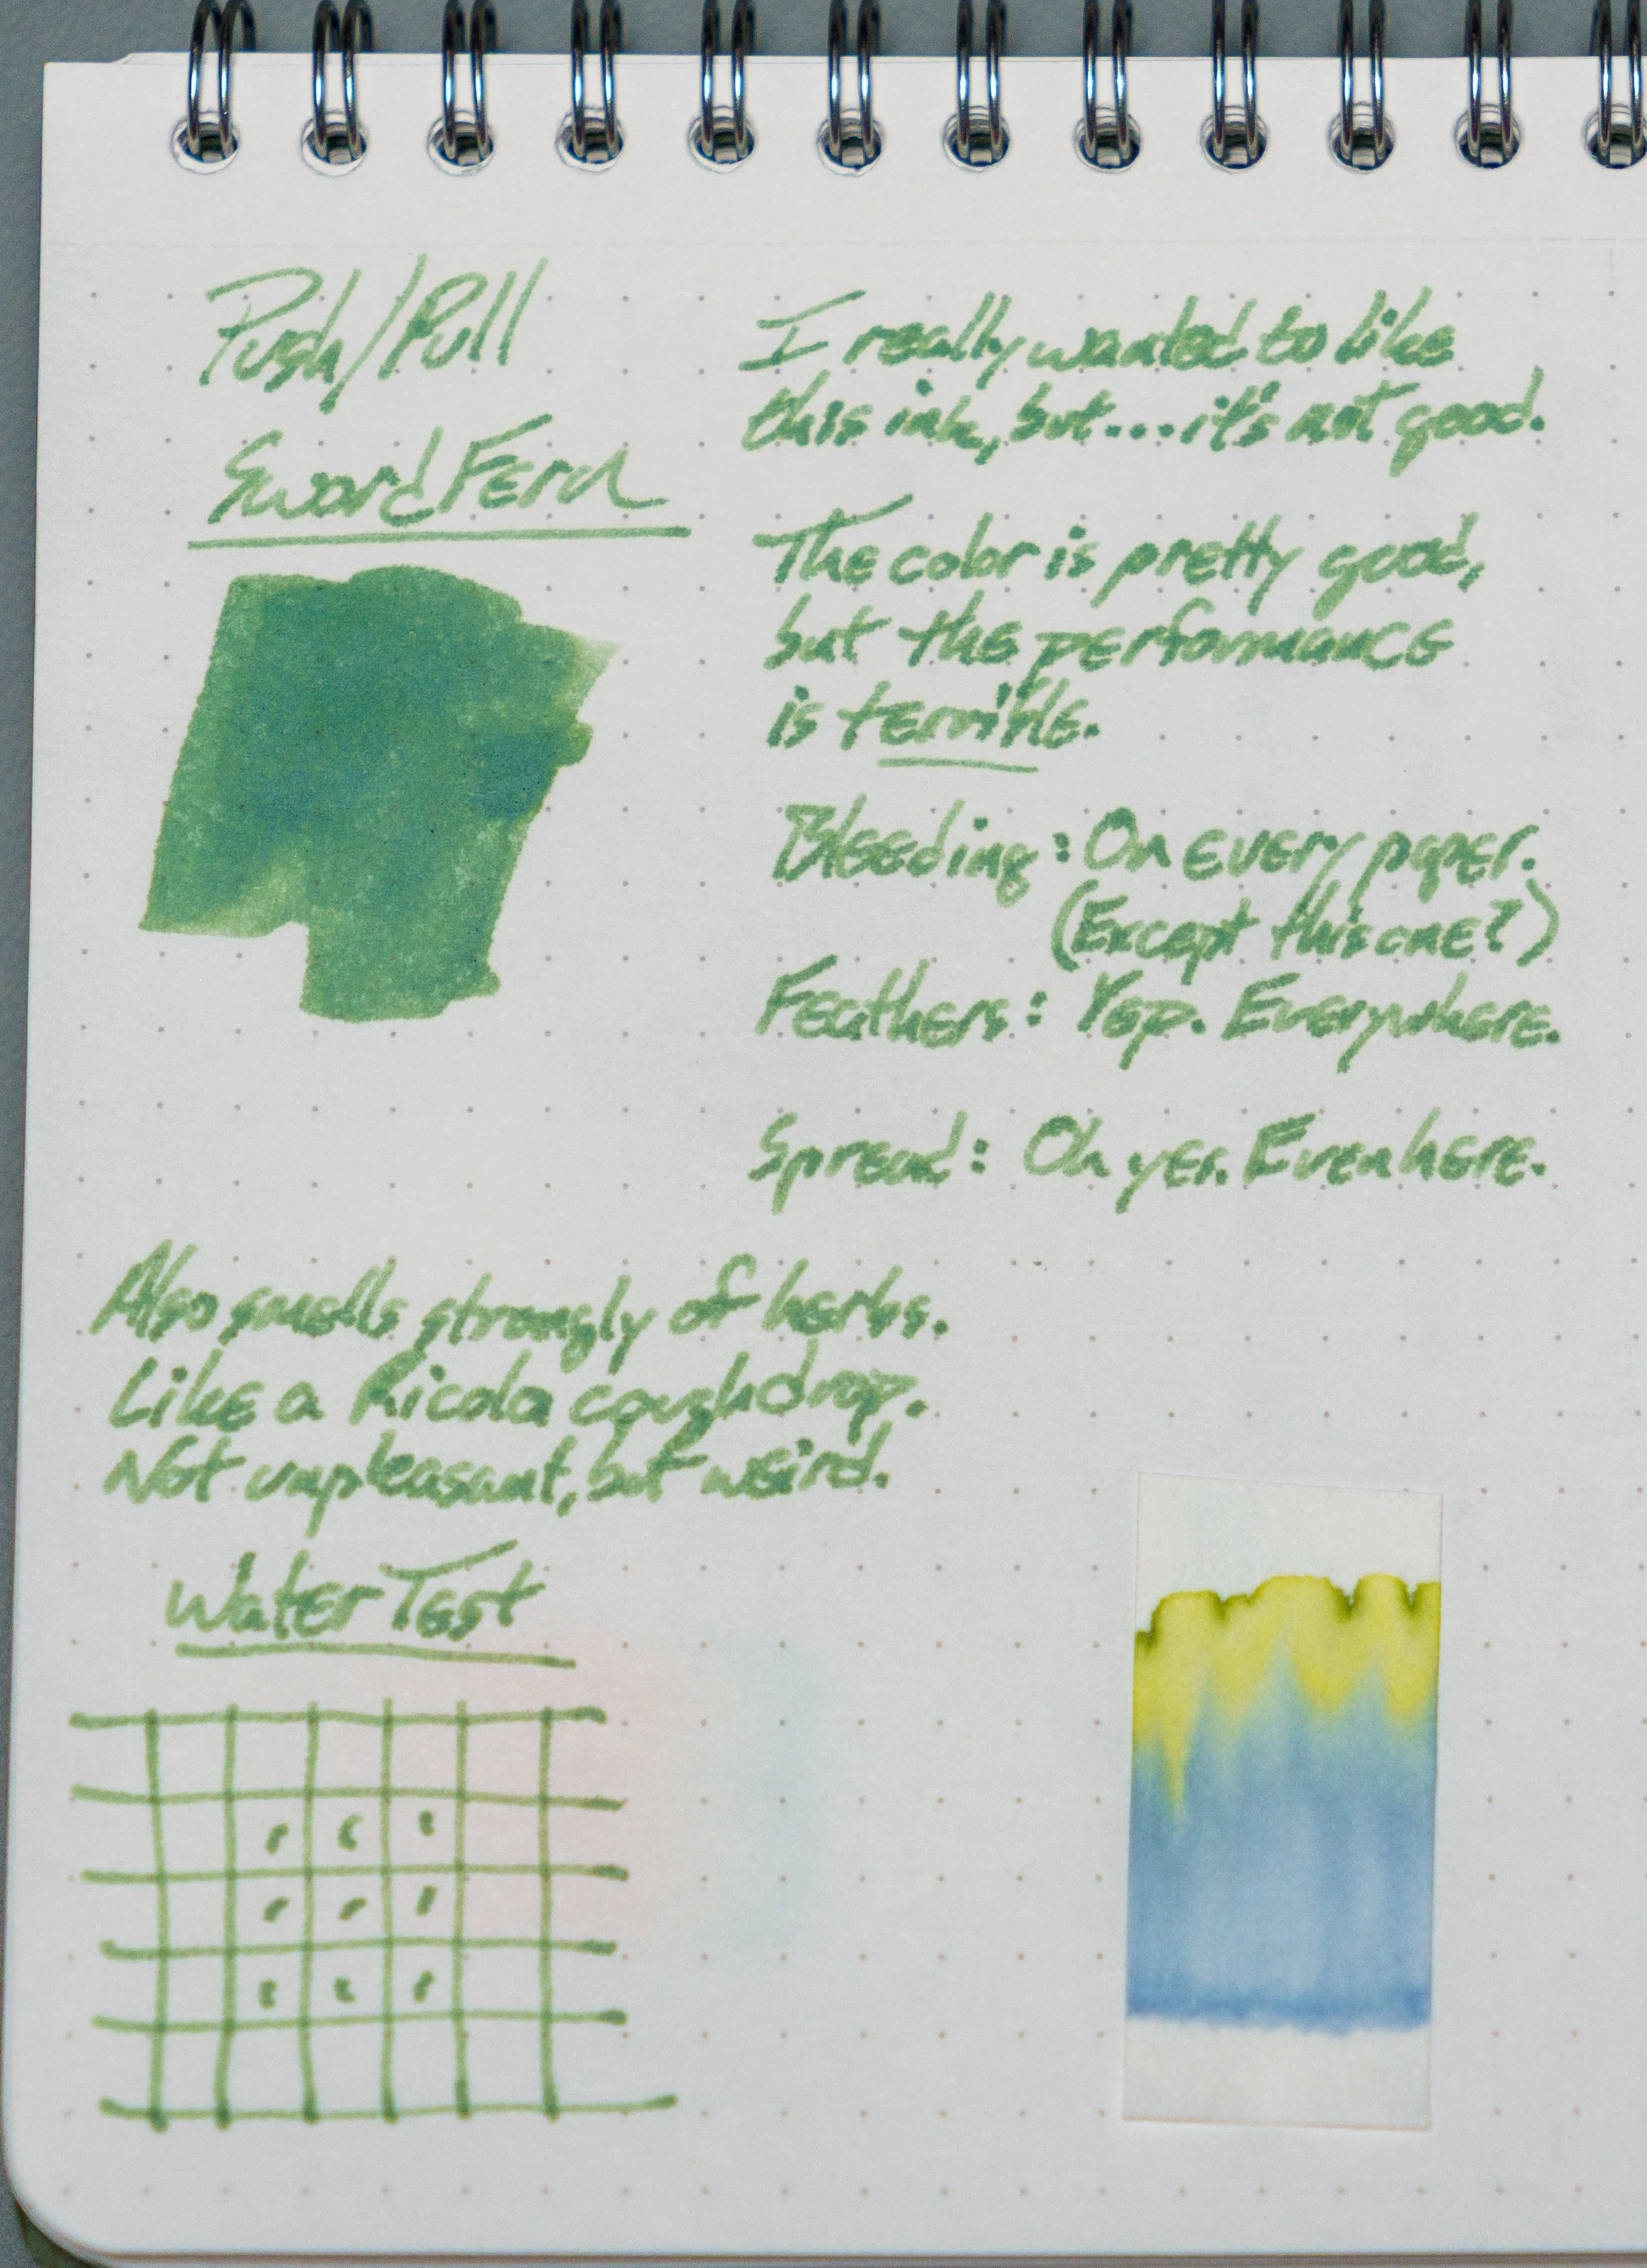 Push/Pull
Sword Fern
I really wanted to like
this ink, but...it's not good.
The color is pretty good,
but the performance
is terrible.
Bleeding: On every paper.
(Except this one?)
Feathers: Yep. Everywhere.
Spread: Oh yes. Even here.
Also smells strongly of herbs.
Like a Ricola coughdrop.
Not unpleasant, but weird.
Water Test